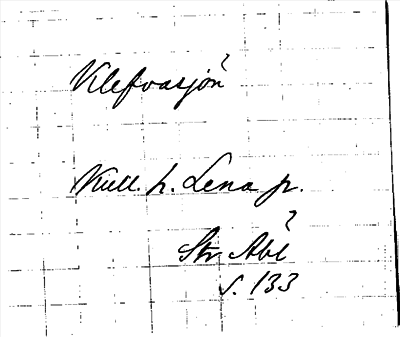 Klefvasjön?
Kull. h. Lena p.
?
Str Abl
s. 133